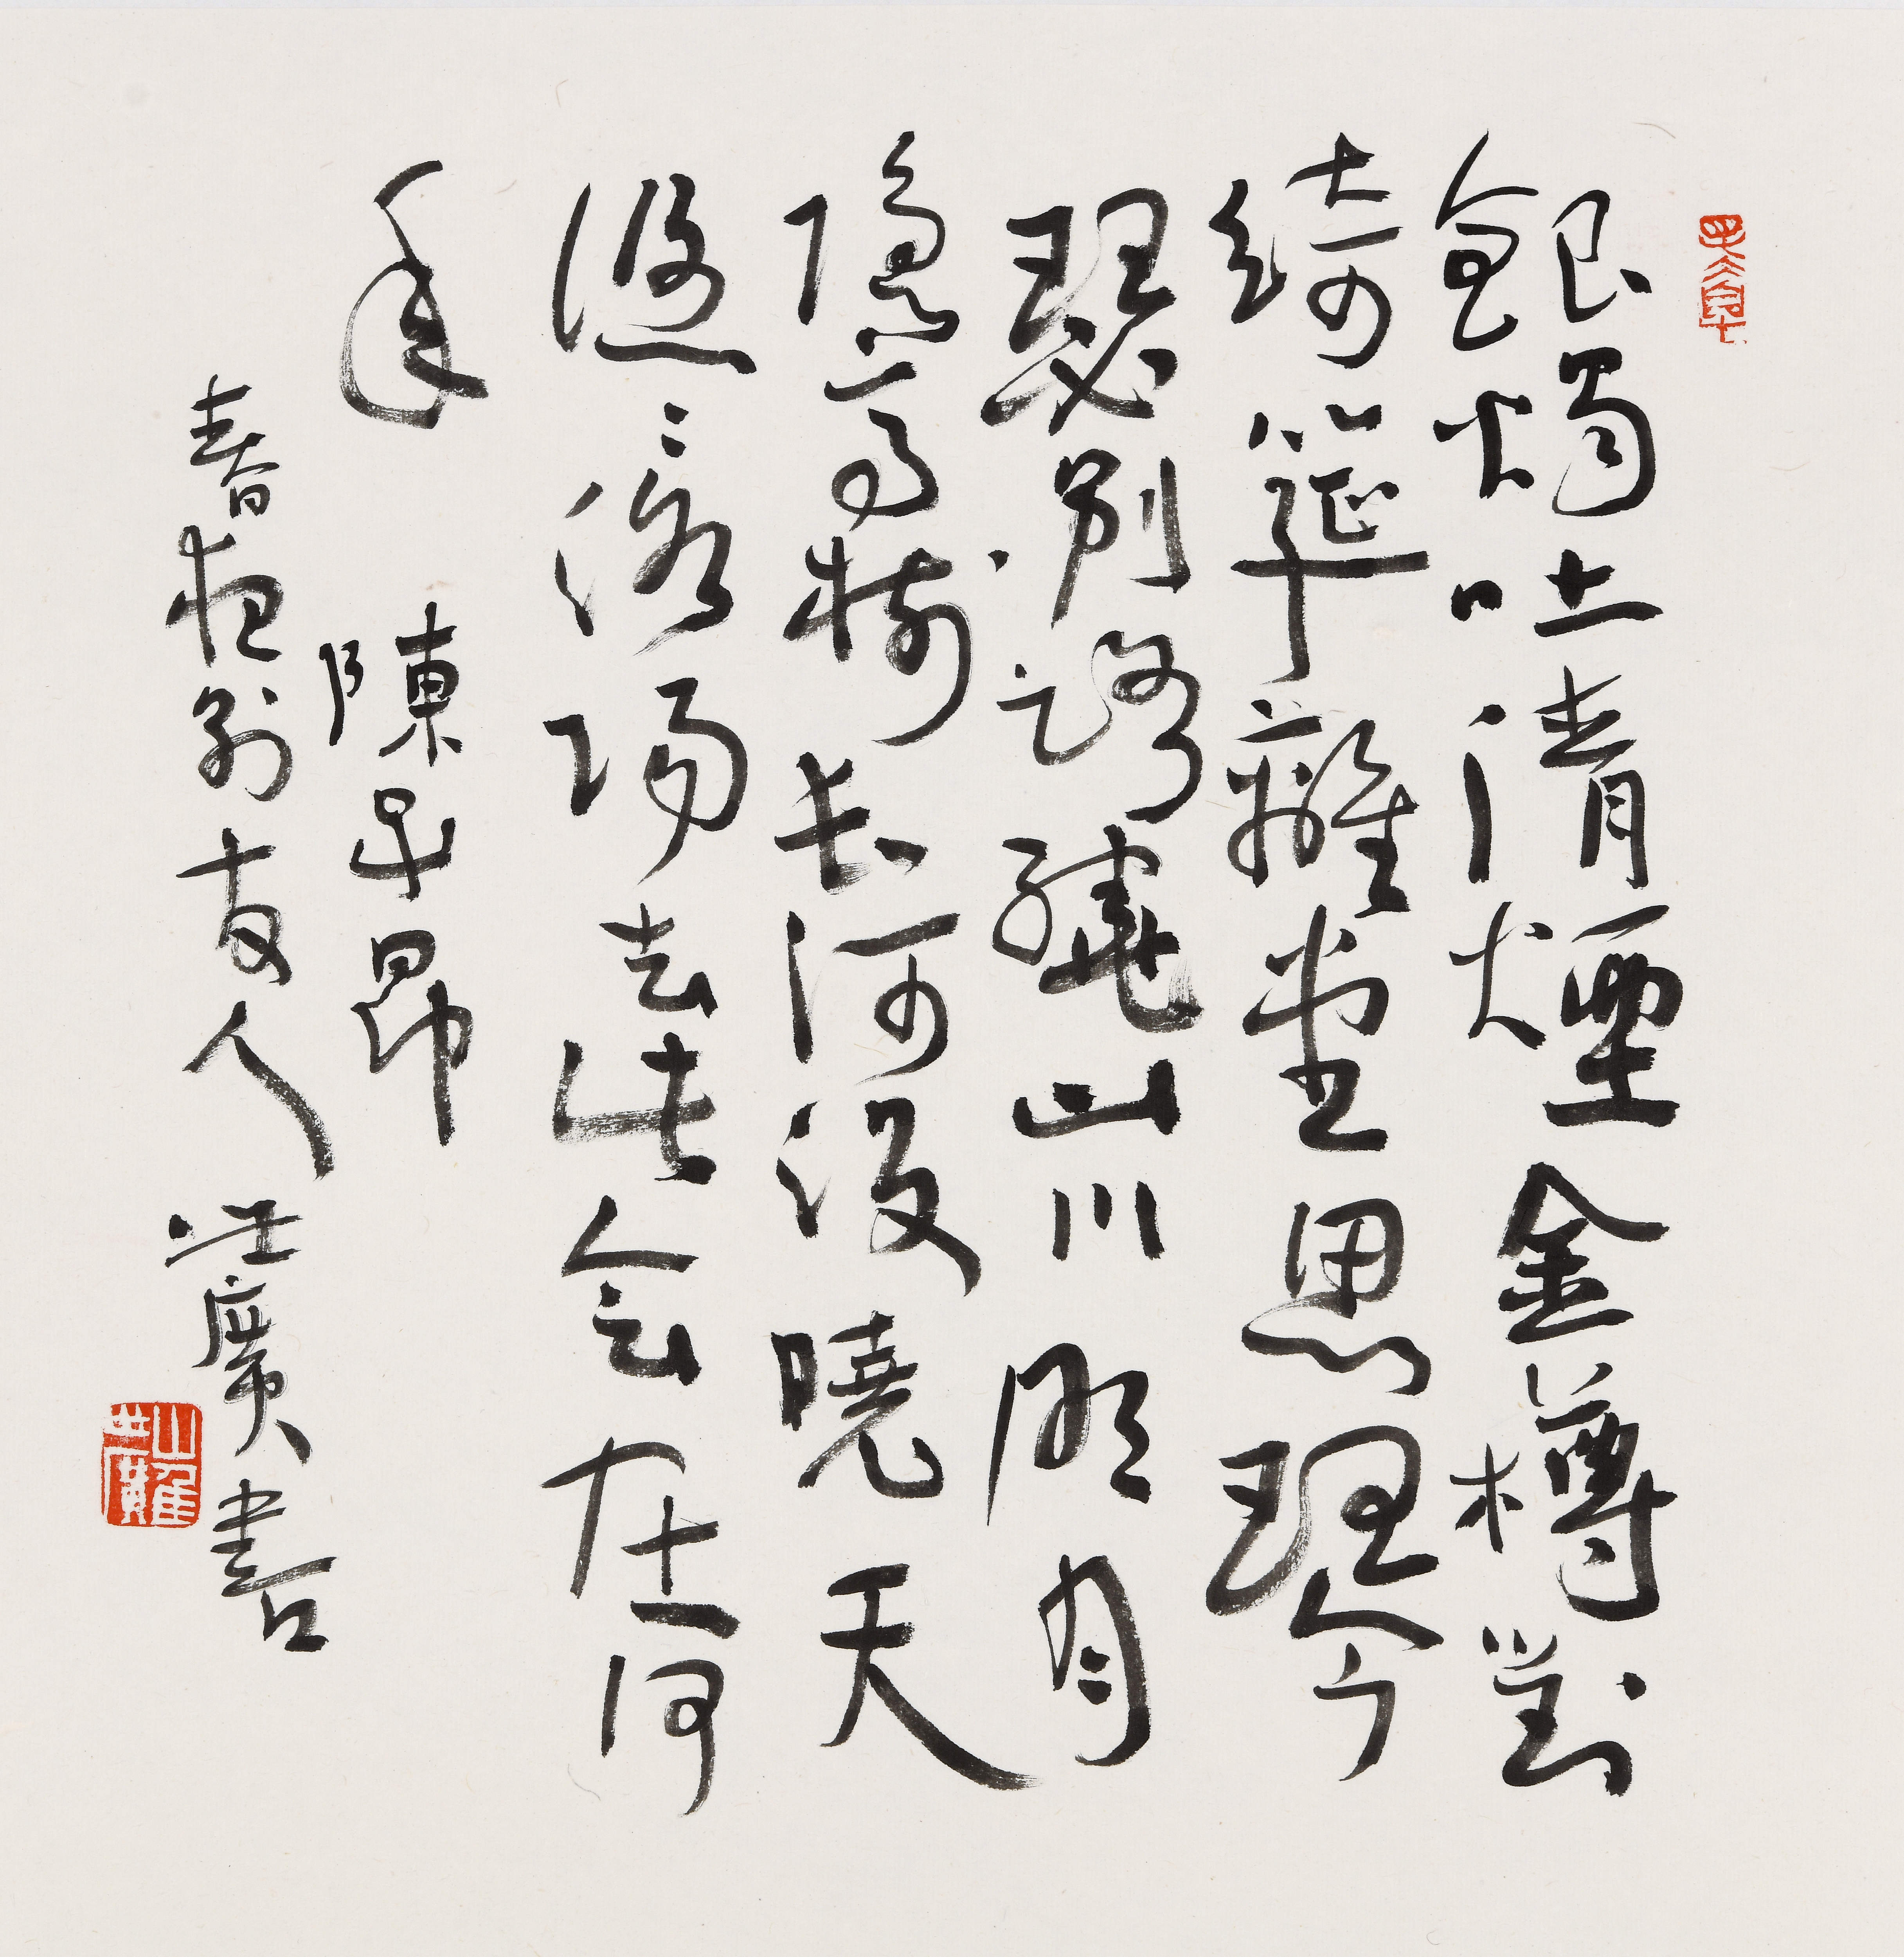 銀燭吐清煙金樽對
綺筵離堂思琴
瑟別路繞山川明月
隱高樹長河沒曉天
悠悠洛陽去此會在何
年
陳子昂
春夜別友人
廣書